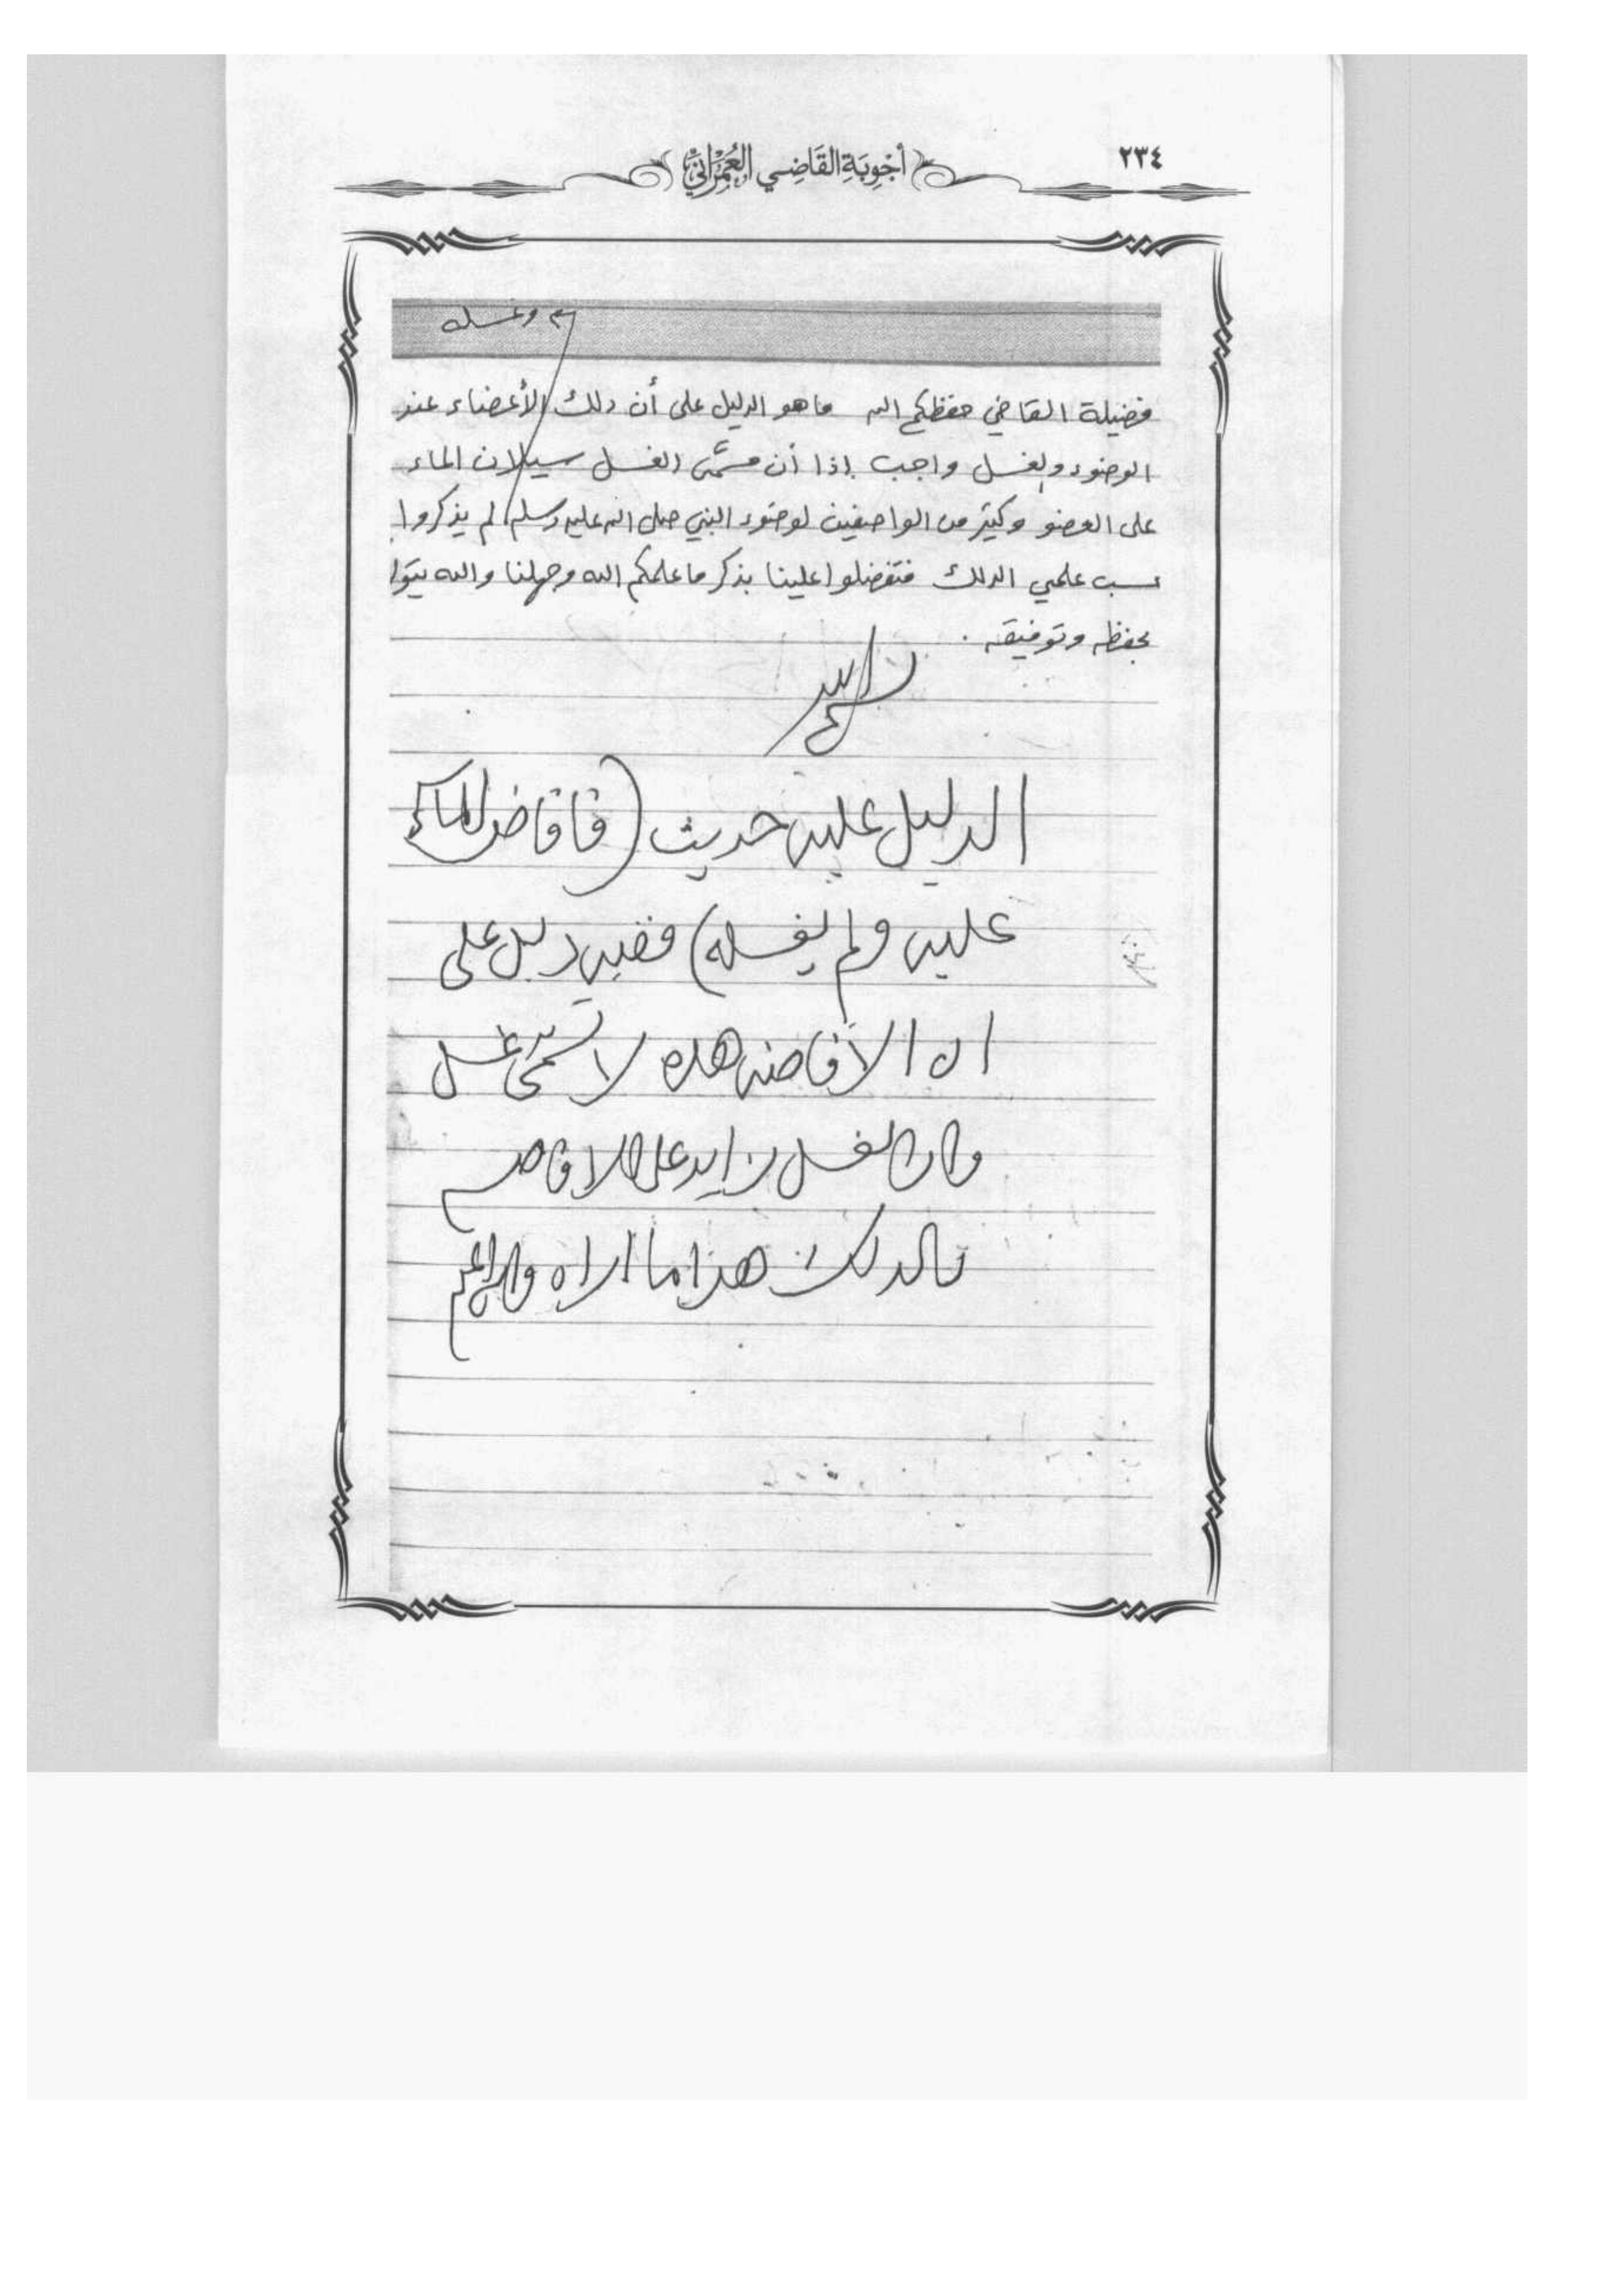 ٢٣٤
أَجْوِبَةِ القَاضِي العِمْرَانِي
وغسله
فضيلة القاضي حفظكم الله ما هو الدليل على أن دلك الأعضاء عند
الوضوء والغسل واجب إذا أن مسمّى الغسل سيلان الماء
على العضو وكثير من الواصفين لوضوء النبي صلى الله عليه وسلم لم يذكروا
سب علمي الدلك فتفضلوا علينا بذكر ما علمكم الله وجهلنا والله يتوا
بحفظه وتوفيقه .
الدليل عليه حديث (فافاض الماء
عليه ولم يغسله) ففيه دليل على
ان الافاضه هذه لا تسمّى غسل
وان الغسل زايد على الافاضه
بالدلك هذا ما اراه والله اعلم